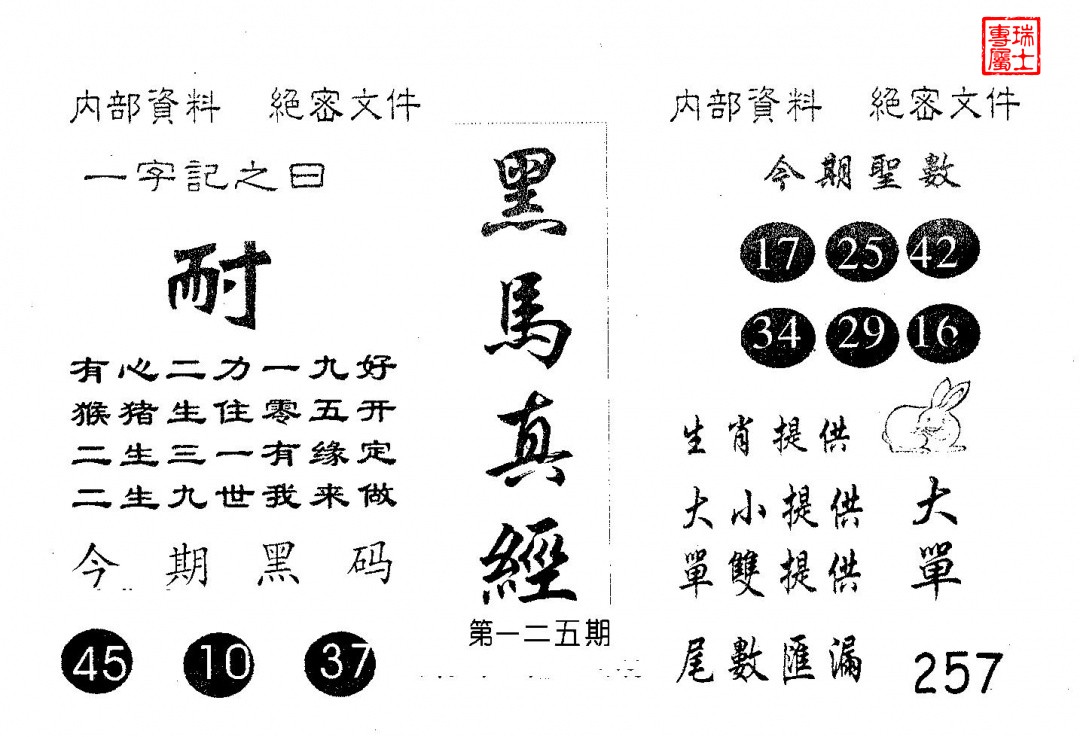 瑞士
專屬
内部資料 絕密文件
一字記之曰
耐
有心二力一九好
猴猪生住零五开
二生三一有缘定
二生九世我来做
今期黑码
45 10 37
黑馬真經
第一二五期
内部資料 絕密文件
今期聖數
17 25 42
34 29 16
生肖提供
大小提供 大
單雙提供 單
尾數匯漏 257